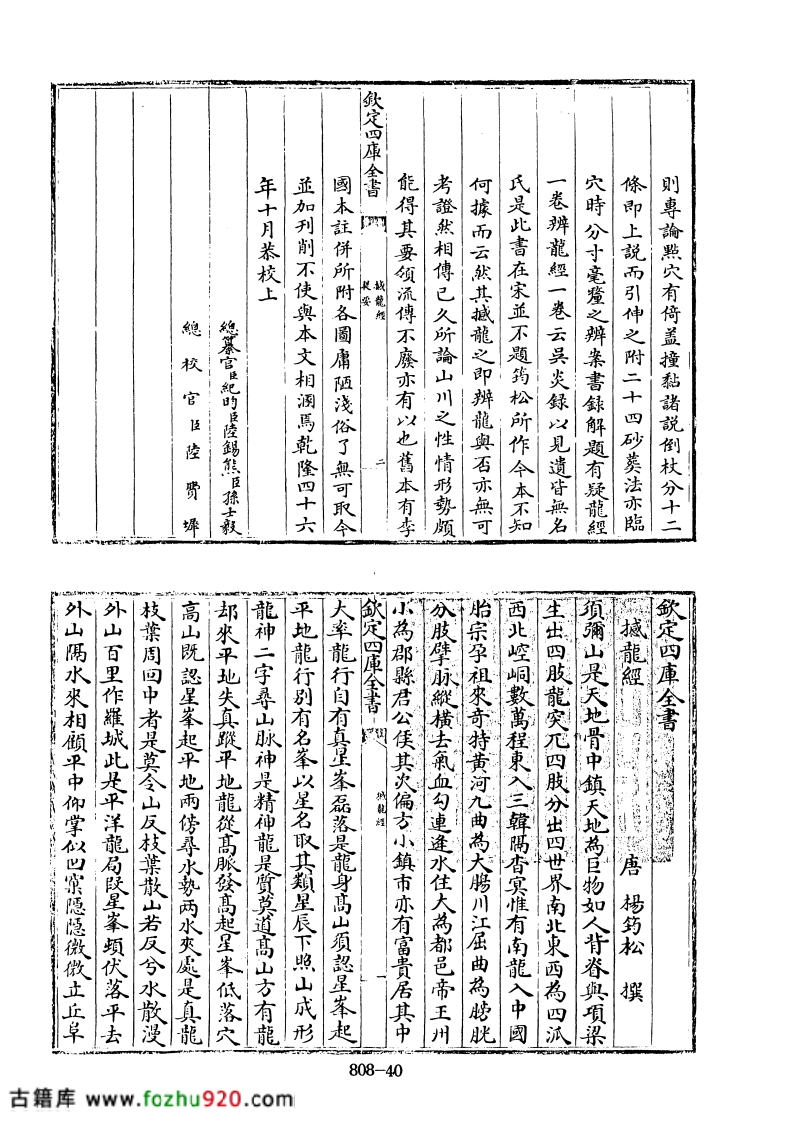 則專論㸃穴有倚盖撞黏諸説倒杖分十二
條即上説而引伸之附二十四砂葬法亦臨
穴時分寸毫釐之辨案書録解題有疑龍經
一卷辨龍經一卷云吳炎録以見遺皆無名
氏是此書在宋並不題筠松所作今本不知
何據而云然其撼龍之即辨龍與否亦無可
考證然相傳已久所論山川之性情形勢頗
能得其要領流傳不廢亦有以也舊本有李
欽定四庫全書
撼龍經
提要
二
國本註併所附各圖庸陋淺俗了無可取今
並加刋削不使與本文相溷焉乾隆四十六
年十月恭校上
總纂官臣紀昀臣陸錫熊臣孫士毅
總校官臣陸費墀
欽定四庫全書
撼龍經
唐 楊筠松 撰
須彌山是天地骨中鎮天地為巨物如人背脊與項梁
生出四肢龍突兀四肢分出四世界南北東西為四派
西北崆峒數萬程東入三韓隔杳冥惟有南龍入中國
胎宗孕祖來奇特黄河九曲為大腸川江屈曲為膀胱
分肢擘脉縱横去氣血勾連逢水住大為都邑帝王州
小為郡縣君公侯其次偏方小鎮市亦有富貴居其中
欽定四庫全書
撼龍經
一
大率龍行自有真星峯磊落是龍身髙山須認星峯起
平地龍行别有名峯以星名取其類星辰下照山成形
龍神二字尋山脈神是精神龍是質莫道髙山方有龍
却來平地失真蹤平地龍從髙脈發髙起星峯低落穴
高山既認星峯起平地兩傍尋水勢兩水夾處是真龍
枝葉周回中者是莫令山反枝葉散山若反兮水散漫
外山百里作羅城此是平洋龍局段星峯頓伏落平去
外山隔水來相顧平中仰掌似凹窠隱隱微微立丘阜
808-40
古籍库 www.fozhu920.com